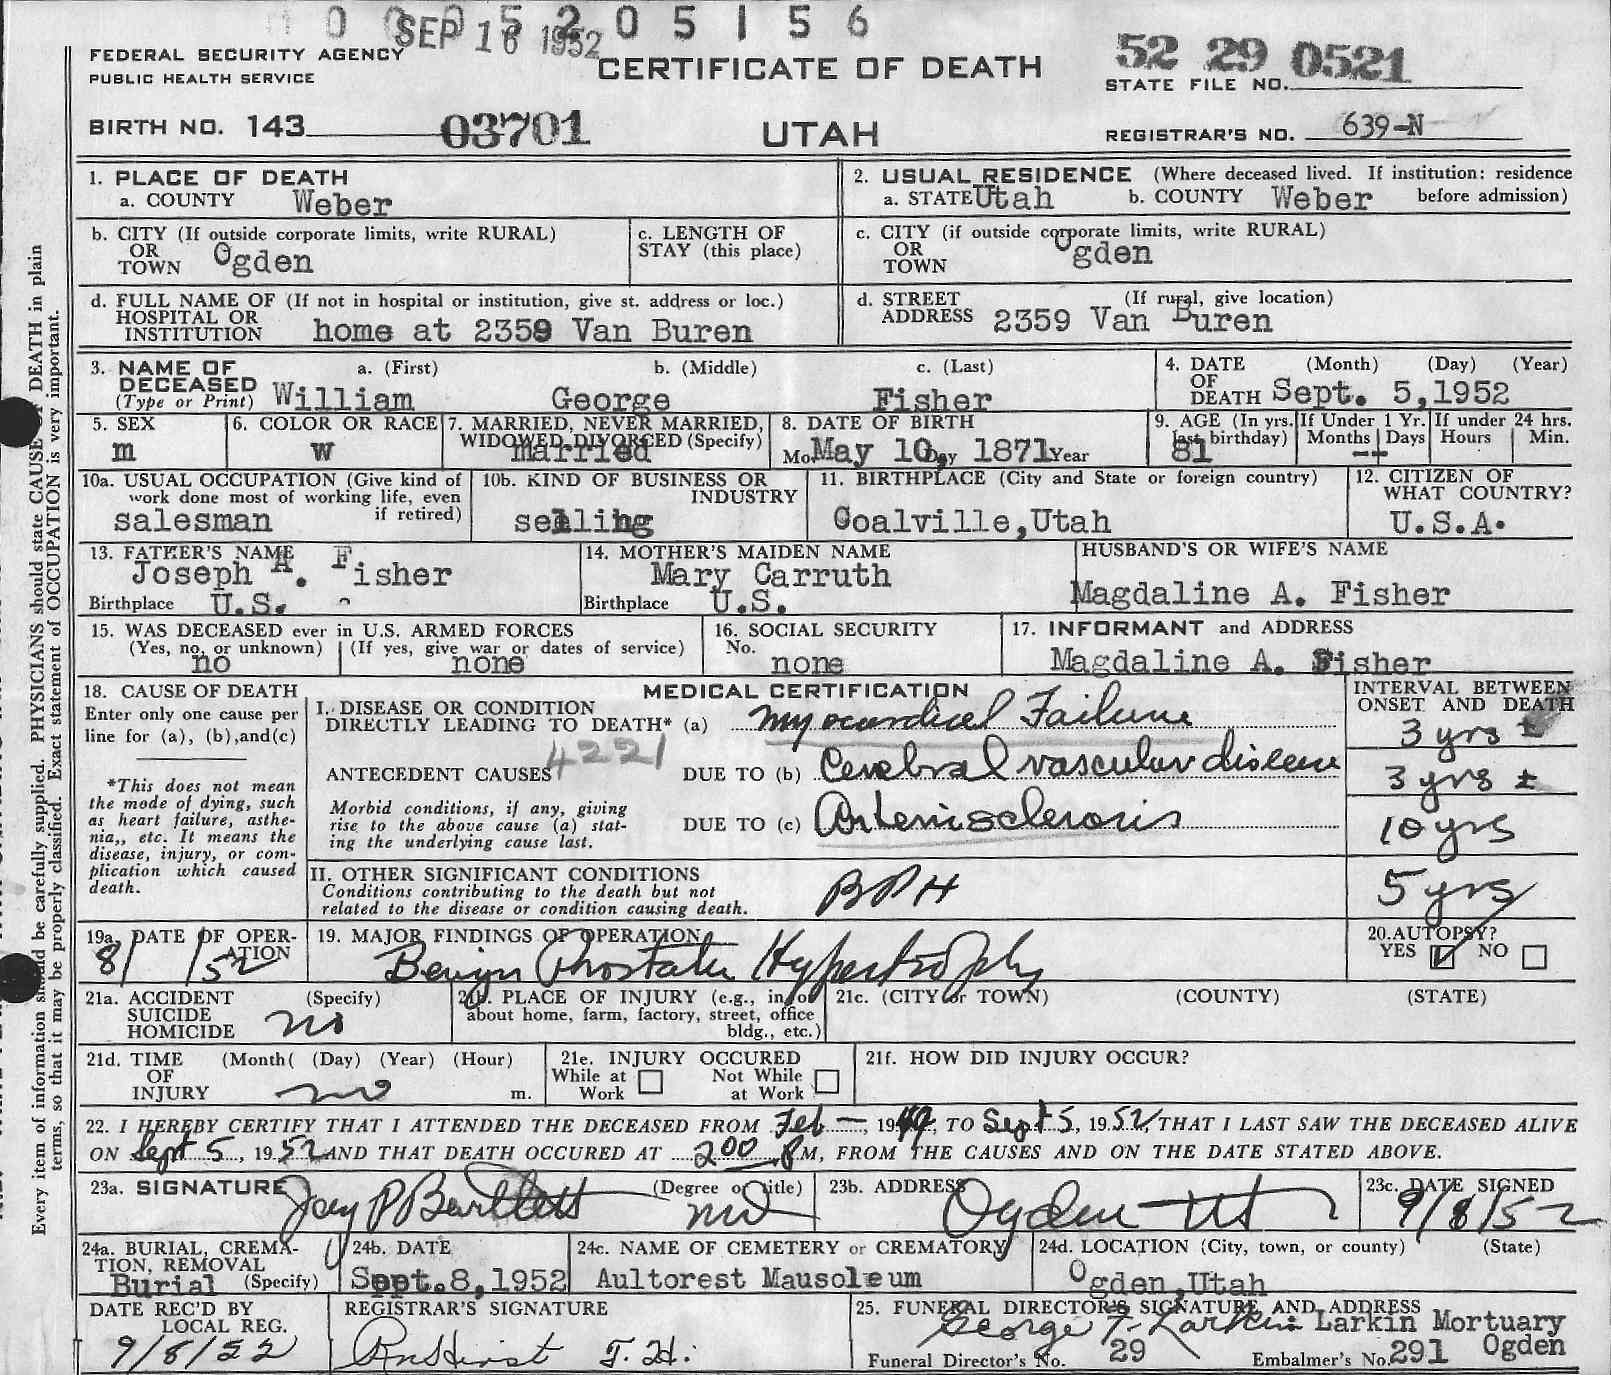 0 0 0 5 2 0 5 1 5 6
SEP 16 1952
FEDERAL SECURITY AGENCY
PUBLIC HEALTH SERVICE
CERTIFICATE OF DEATH
52 29 0521
STATE FILE NO.
BIRTH NO. 143 03701
UTAH
REGISTRAR'S NO. 639-N
1. PLACE OF DEATH
a. COUNTY Weber
2. USUAL RESIDENCE (Where deceased lived. If institution: residence
a. STATE Utah b. COUNTY Weber before admission)
b. CITY (If outside corporate limits, write RURAL)
OR
TOWN Ogden
c. LENGTH OF
STAY (this place)
c. CITY (if outside corporate limits, write RURAL)
OR
TOWN Ogden
d. FULL NAME OF (If not in hospital or institution, give st. address or loc.)
HOSPITAL OR
INSTITUTION home at 2359 Van Buren
d. STREET (If rural, give location)
ADDRESS 2359 Van Buren
3. NAME OF a. (First) b. (Middle) c. (Last)
DECEASED
(Type or Print) William George Fisher
4. DATE (Month) (Day) (Year)
OF
DEATH Sept. 5,1952
5. SEX
m
6. COLOR OR RACE
w
7. MARRIED, NEVER MARRIED,
WIDOWED, DIVORCED (Specify)
married
8. DATE OF BIRTH
Mo. May 10, Day 1871 Year
9. AGE (In yrs. last birthday)
81
If Under 1 Yr.
Months Days
--
If under 24 hrs.
Hours Min.
10a. USUAL OCCUPATION (Give kind of
work done most of working life, even
if retired)
salesman
10b. KIND OF BUSINESS OR
INDUSTRY
selling
11. BIRTHPLACE (City and State or foreign country)
Coalville,Utah
12. CITIZEN OF
WHAT COUNTRY?
U.S.A.
13. FATHER'S NAME
Joseph A. Fisher
Birthplace U.S.
14. MOTHER'S MAIDEN NAME
Mary Carruth
Birthplace U.S.
HUSBAND'S OR WIFE'S NAME
Magdaline A. Fisher
15. WAS DECEASED ever in U.S. ARMED FORCES
(Yes, no, or unknown) (If yes, give war or dates of service)
no none
16. SOCIAL SECURITY
No.
none
17. INFORMANT and ADDRESS
Magdaline A. Fisher
18. CAUSE OF DEATH
Enter only one cause per
line for (a), (b),and(c)
*This does not mean
the mode of dying, such
as heart failure, asthe-
nia,, etc. It means the
disease, injury, or com-
plication which caused
death.
MEDICAL CERTIFICATION
I. DISEASE OR CONDITION
DIRECTLY LEADING TO DEATH* (a) Myocardical Failure
4221
ANTECEDENT CAUSES DUE TO (b) Cerebral vascular disease
Morbid conditions, if any, giving
rise to the above cause (a) stat-
ing the underlying cause last.
DUE TO (c) Arteriosclerosis
II. OTHER SIGNIFICANT CONDITIONS
Conditions contributing to the death but not
related to the disease or condition causing death.
BPH
INTERVAL BETWEEN
ONSET AND DEATH
3 yrs ±
3 yrs ±
10 yrs
5 yrs
19a. DATE OF OPER-
ATION
8/ /52
19. MAJOR FINDINGS OF OPERATION
Benign Prostatic Hypertrophy
20. AUTOPSY?
YES NO
21a. ACCIDENT (Specify)
SUICIDE
HOMICIDE no
21b. PLACE OF INJURY (e.g., in or
about home, farm, factory, street, office
bldg., etc.)
21c. (CITY or TOWN) (COUNTY) (STATE)
21d. TIME (Month( (Day) (Year) (Hour)
OF
INJURY no m.
21e. INJURY OCCURED
While at Work Not While at Work
21f. HOW DID INJURY OCCUR?
22. I HEREBY CERTIFY THAT I ATTENDED THE DECEASED FROM Feb —, 1949, TO Sept 5, 1952, THAT I LAST SAW THE DECEASED ALIVE
ON Sept 5, 1952 AND THAT DEATH OCCURED AT 2:00 PM, FROM THE CAUSES AND ON THE DATE STATED ABOVE.
23a. SIGNATURE (Degree or title)
Jay P Bartlett MD
23b. ADDRESS
Ogden Ut
23c. DATE SIGNED
9/8/52
24a. BURIAL, CREMA-
TION, REMOVAL
Burial (Specify)
24b. DATE
Sept.8,1952
24c. NAME OF CEMETERY or CREMATORY
Aultorest Mausoleum
24d. LOCATION (City, town, or county) (State)
Ogden,Utah
DATE REC'D BY
LOCAL REG.
9/8/52
REGISTRAR'S SIGNATURE
J. H.
25. FUNERAL DIRECTOR'S SIGNATURE AND ADDRESS
George T. Larkin Larkin Mortuary
Funeral Director's No. 29 Embalmer's No. 291 Ogden
Every item of information should be carefully supplied. PHYSICIANS should state CAUSE OF DEATH in plain
terms, so that it may be properly classified. Exact statement of OCCUPATION is very important.